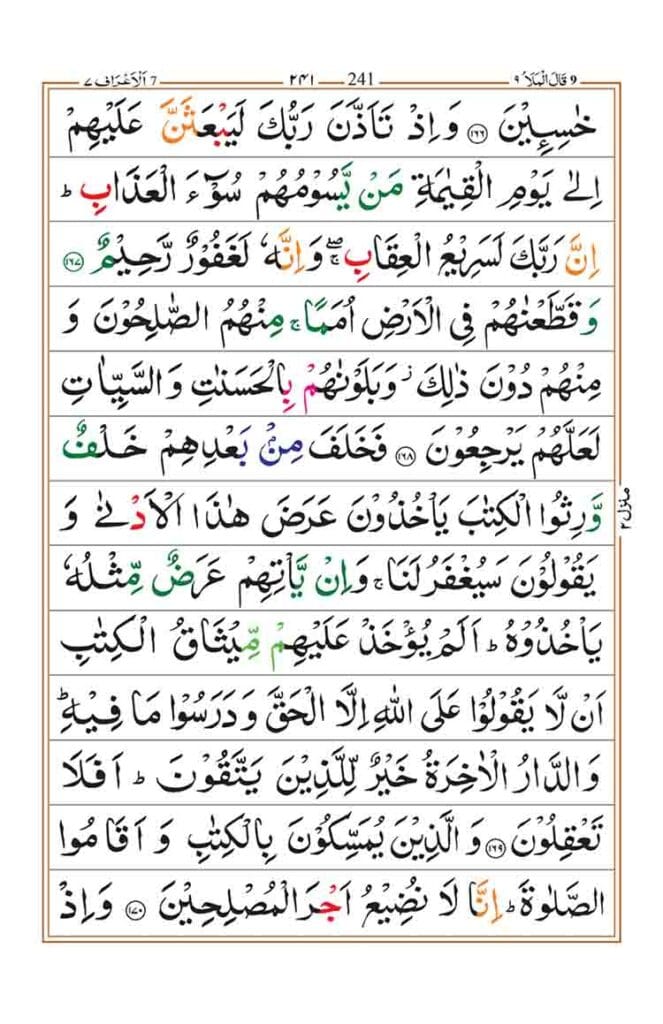 ٩ قَالَ الْمَلَاُ 9 241 ٢٤١ اَلْاَعْرَاف ٧ 7
خٰسِـِٕیْنَ ﴿۱۶۶﴾ وَ اِذْ تَاَذَّنَ رَبُّكَ لَیَبْعَثَنَّ عَلَیْهِمْ
اِلٰی یَوْمِ الْقِیٰمَةِ مَنْ یَّسُوْمُهُمْ سُوْٓءَ الْعَذَابِ ؕ
اِنَّ رَبَّكَ لَسَرِیْعُ الْعِقَابِ ۚۖ وَ اِنَّهٗ لَغَفُوْرٌ رَّحِیْمٌ ﴿۱۶۷﴾
وَ قَطَّعْنٰهُمْ فِی الْاَرْضِ اُمَمًا ۚ مِنْهُمُ الصّٰلِحُوْنَ وَ
مِنْهُمْ دُوْنَ ذٰلِكَ ؗ وَ بَلَوْنٰهُمْ بِالْحَسَنٰتِ وَ السَّیِّاٰتِ
لَعَلَّهُمْ یَرْجِعُوْنَ ﴿۱۶۸﴾ فَخَلَفَ مِنْۢ بَعْدِهِمْ خَلْفٌ
وَّرِثُوا الْكِتٰبَ یَاْخُذُوْنَ عَرَضَ هٰذَا الْاَدْنٰی وَ
یَقُوْلُوْنَ سَیُغْفَرُ لَنَا ۚ وَ اِنْ یَّاْتِهِمْ عَرَضٌ مِّثْلُهٗ
یَاْخُذُوْهُ ؕ اَلَمْ یُؤْخَذْ عَلَیْهِمْ مِّیْثَاقُ الْكِتٰبِ
اَنْ لَّا یَقُوْلُوْا عَلَی اللّٰهِ اِلَّا الْحَقَّ وَ دَرَسُوْا مَا فِیْهِ ؕ
وَ الدَّارُ الْاٰخِرَةُ خَیْرٌ لِّلَّذِیْنَ یَتَّقُوْنَ ؕ اَفَلَا
تَعْقِلُوْنَ ﴿۱۶۹﴾ وَ الَّذِیْنَ یُمَسِّكُوْنَ بِالْكِتٰبِ وَ اَقَامُوا
الصَّلٰوةَ ؕ اِنَّا لَا نُضِیْعُ اَجْرَ الْمُصْلِحِیْنَ ﴿۱۷۰﴾ وَ اِذْ
منزل ٢